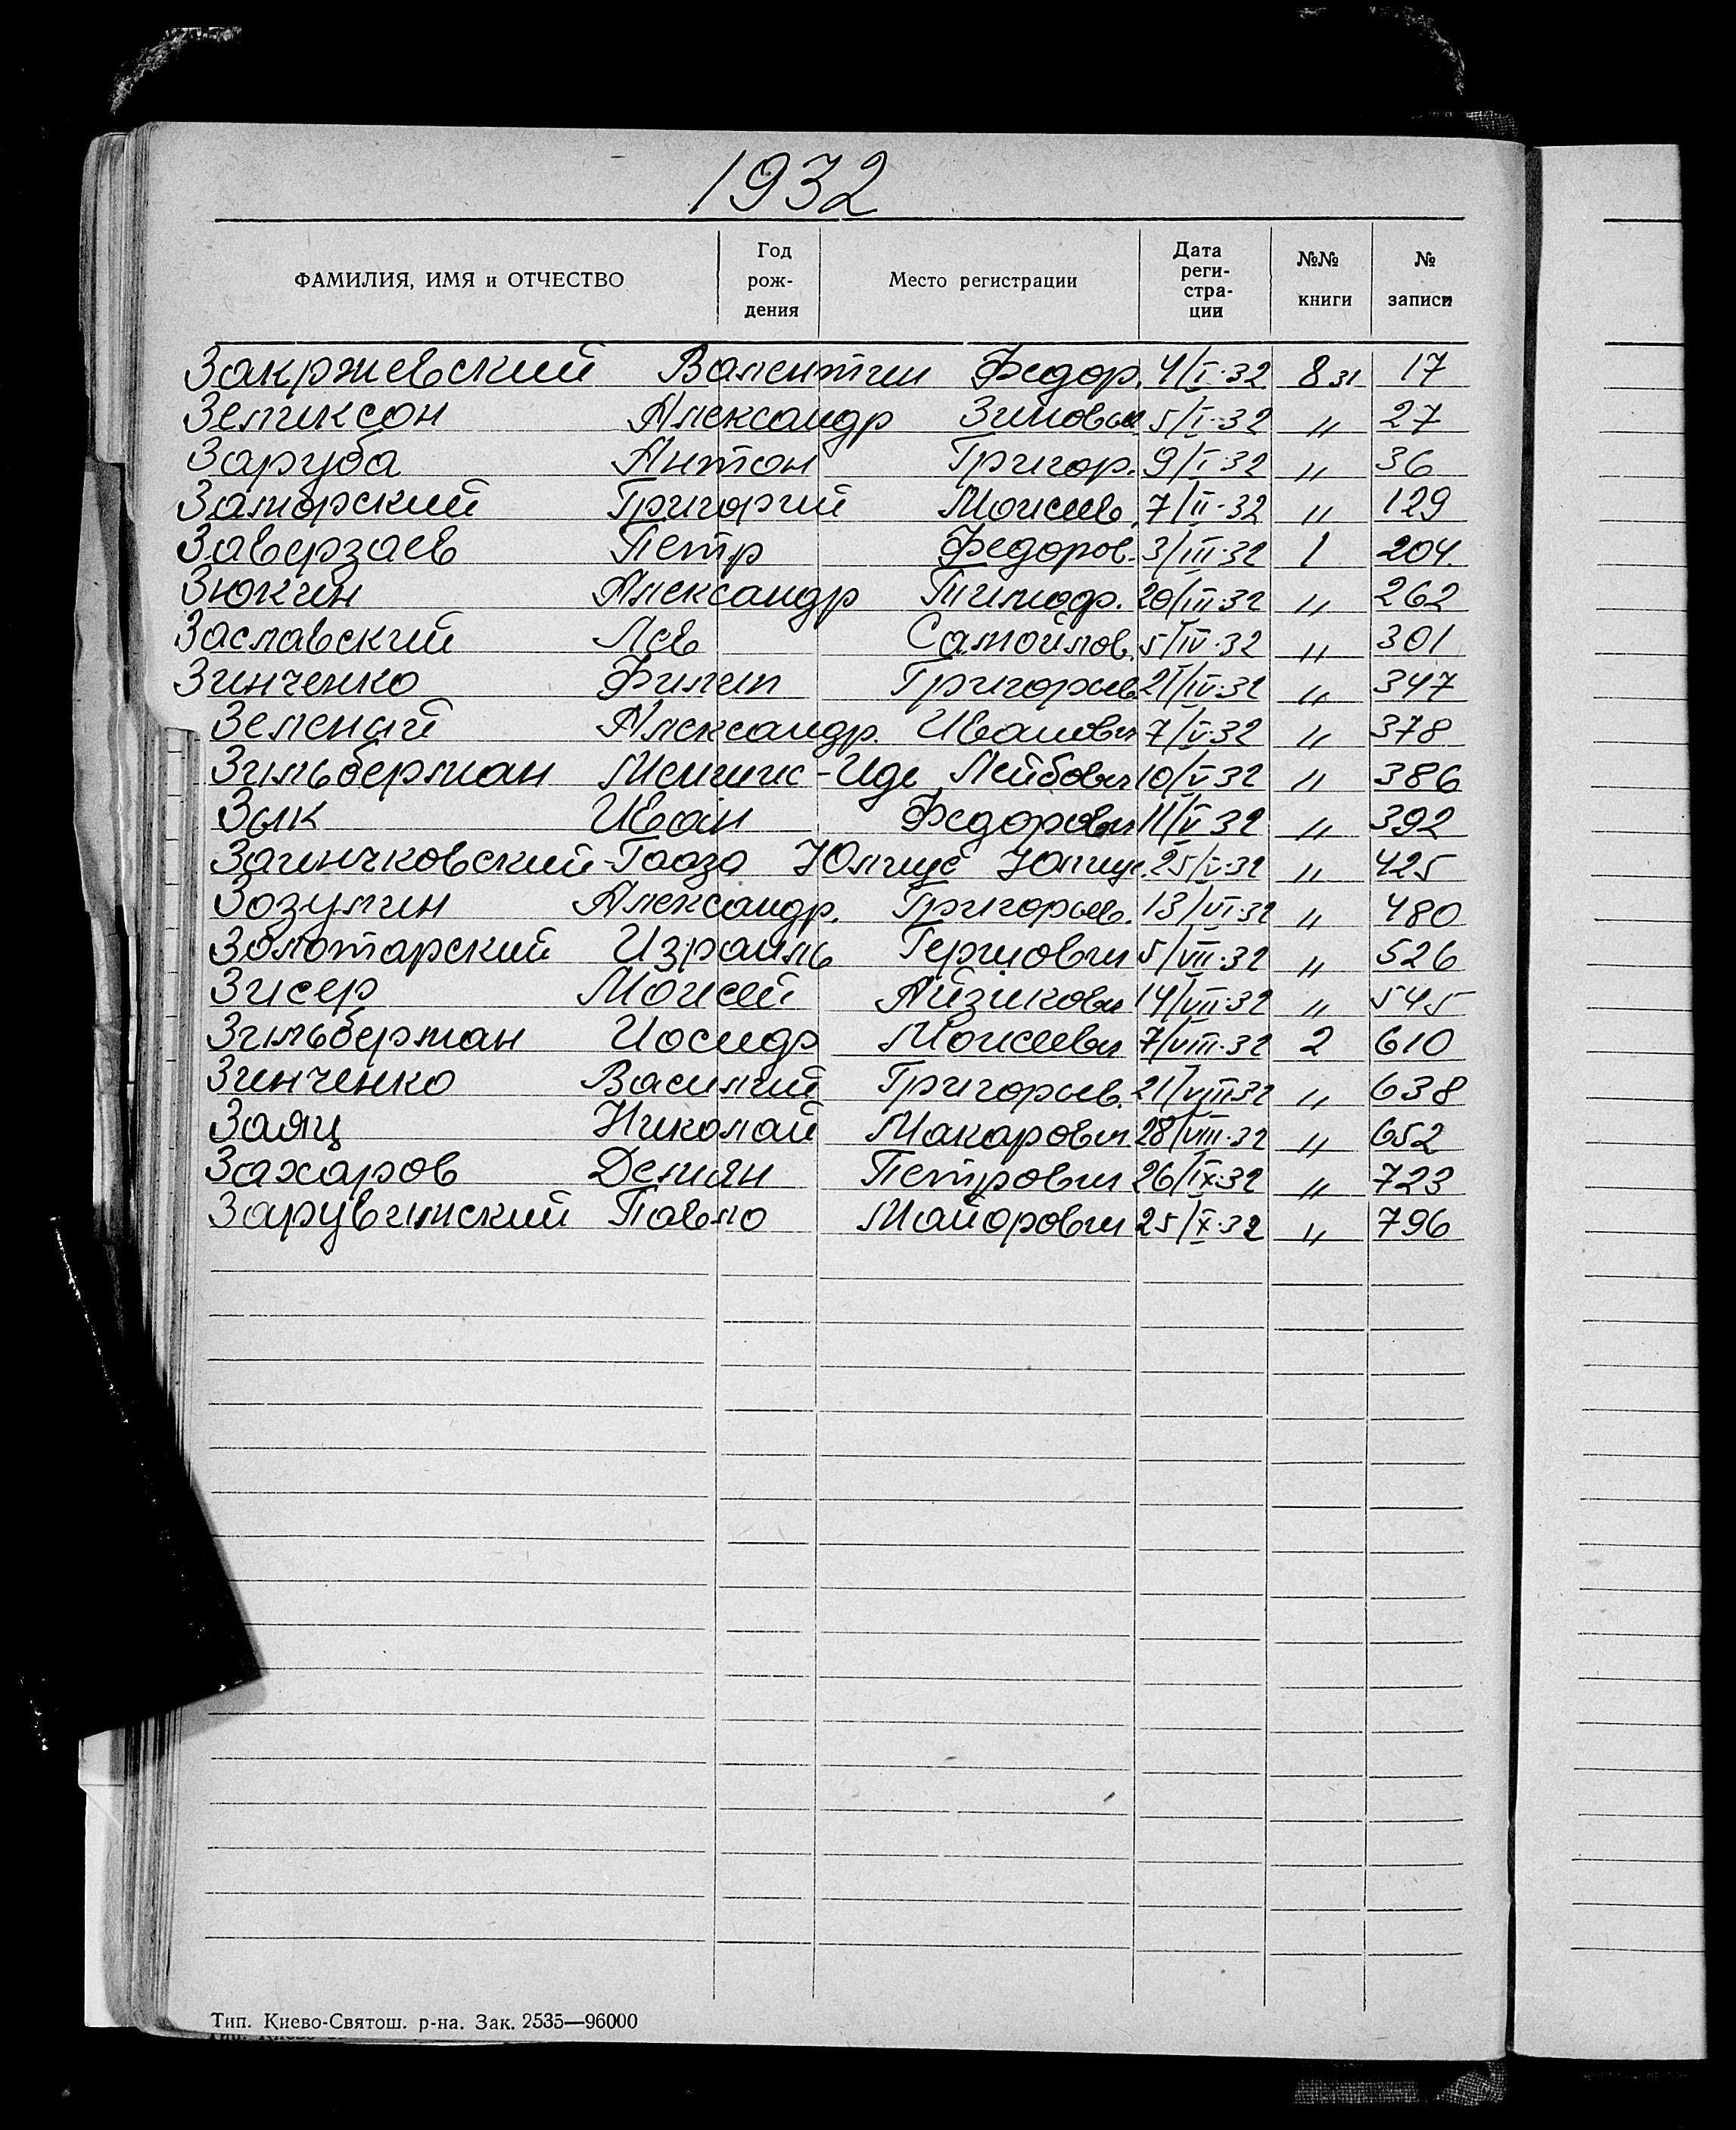 1932
ФАМИЛИЯ, ИМЯ и ОТЧЕСТВО Год рож- дения Место регистрации Дата реги- стра- ции №№ книги № записи
Закржевский Валентин Федор. 4/I·32 8 31 17
Зеликсон Александр Зиновьи 5/I·32 " 27
Заруба Антон Григор. 9/I·32 " 36
Заморский Григорий Моисеев. 7/II·32 " 129
Заверзаев Петр Федоров. 3/III·32 1 204.
Зюкин Александр Тимофр. 20/III·32 " 262
Заславский Лев Самойлов. 5/IV·32 " 301
Зинченко Филип Григорьев. 21/IV·32 " 347
Зеленый Александр. Иванович 7/V·32 " 378
Зильберман -Иде Лейбович 10/V·32 " 386
Зык Иван Федорович 11/V 32 " 392
Заинчковский-Гаоза Юлиус Юлиус. 25/V·32 " 425
Зозулин Александр. Григорьев. 13/VI·32 " 480
Золотарский Израиль Гершович 5/VII·32 " 526
Зисер Моисей Айзикович 14/VII·32 " 545
Зильберман Иосиф Моисеевич 7/VIII·32 2 610
Зинченко Василий Григорьев. 21/VIII32 " 638
Заяц Николай Макарович. 28/VIII·32 " 652
Захаров Демян Петрович 26/IX·32 " 723
Зарувимский Павло Майорович 25/X·32 " 796
Тип. Киево-Святош. р-на. Зак. 2535—96000